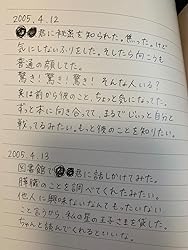 2005. 4. 12
君に秘密を知られた。焦った。けど
気にしないふりをした。そしたら向こうも
普通の顔してた。
驚き!驚き!驚き! そんな人いる?
実は前から彼のこと、ちょっと気になってた。
ずっと本に向き合ってて、まるでじっと自分と
戦ってるみたい。もっと彼のことを知りたい。
2005. 4. 13
図書館で 君に話しかけてみた。
膵臓のことを調べてくれたみたい。
他人に興味ないなんてもったいない
こと言うから、私の星の王子さまを貸した。
ちゃんと読んでくれるといいな。